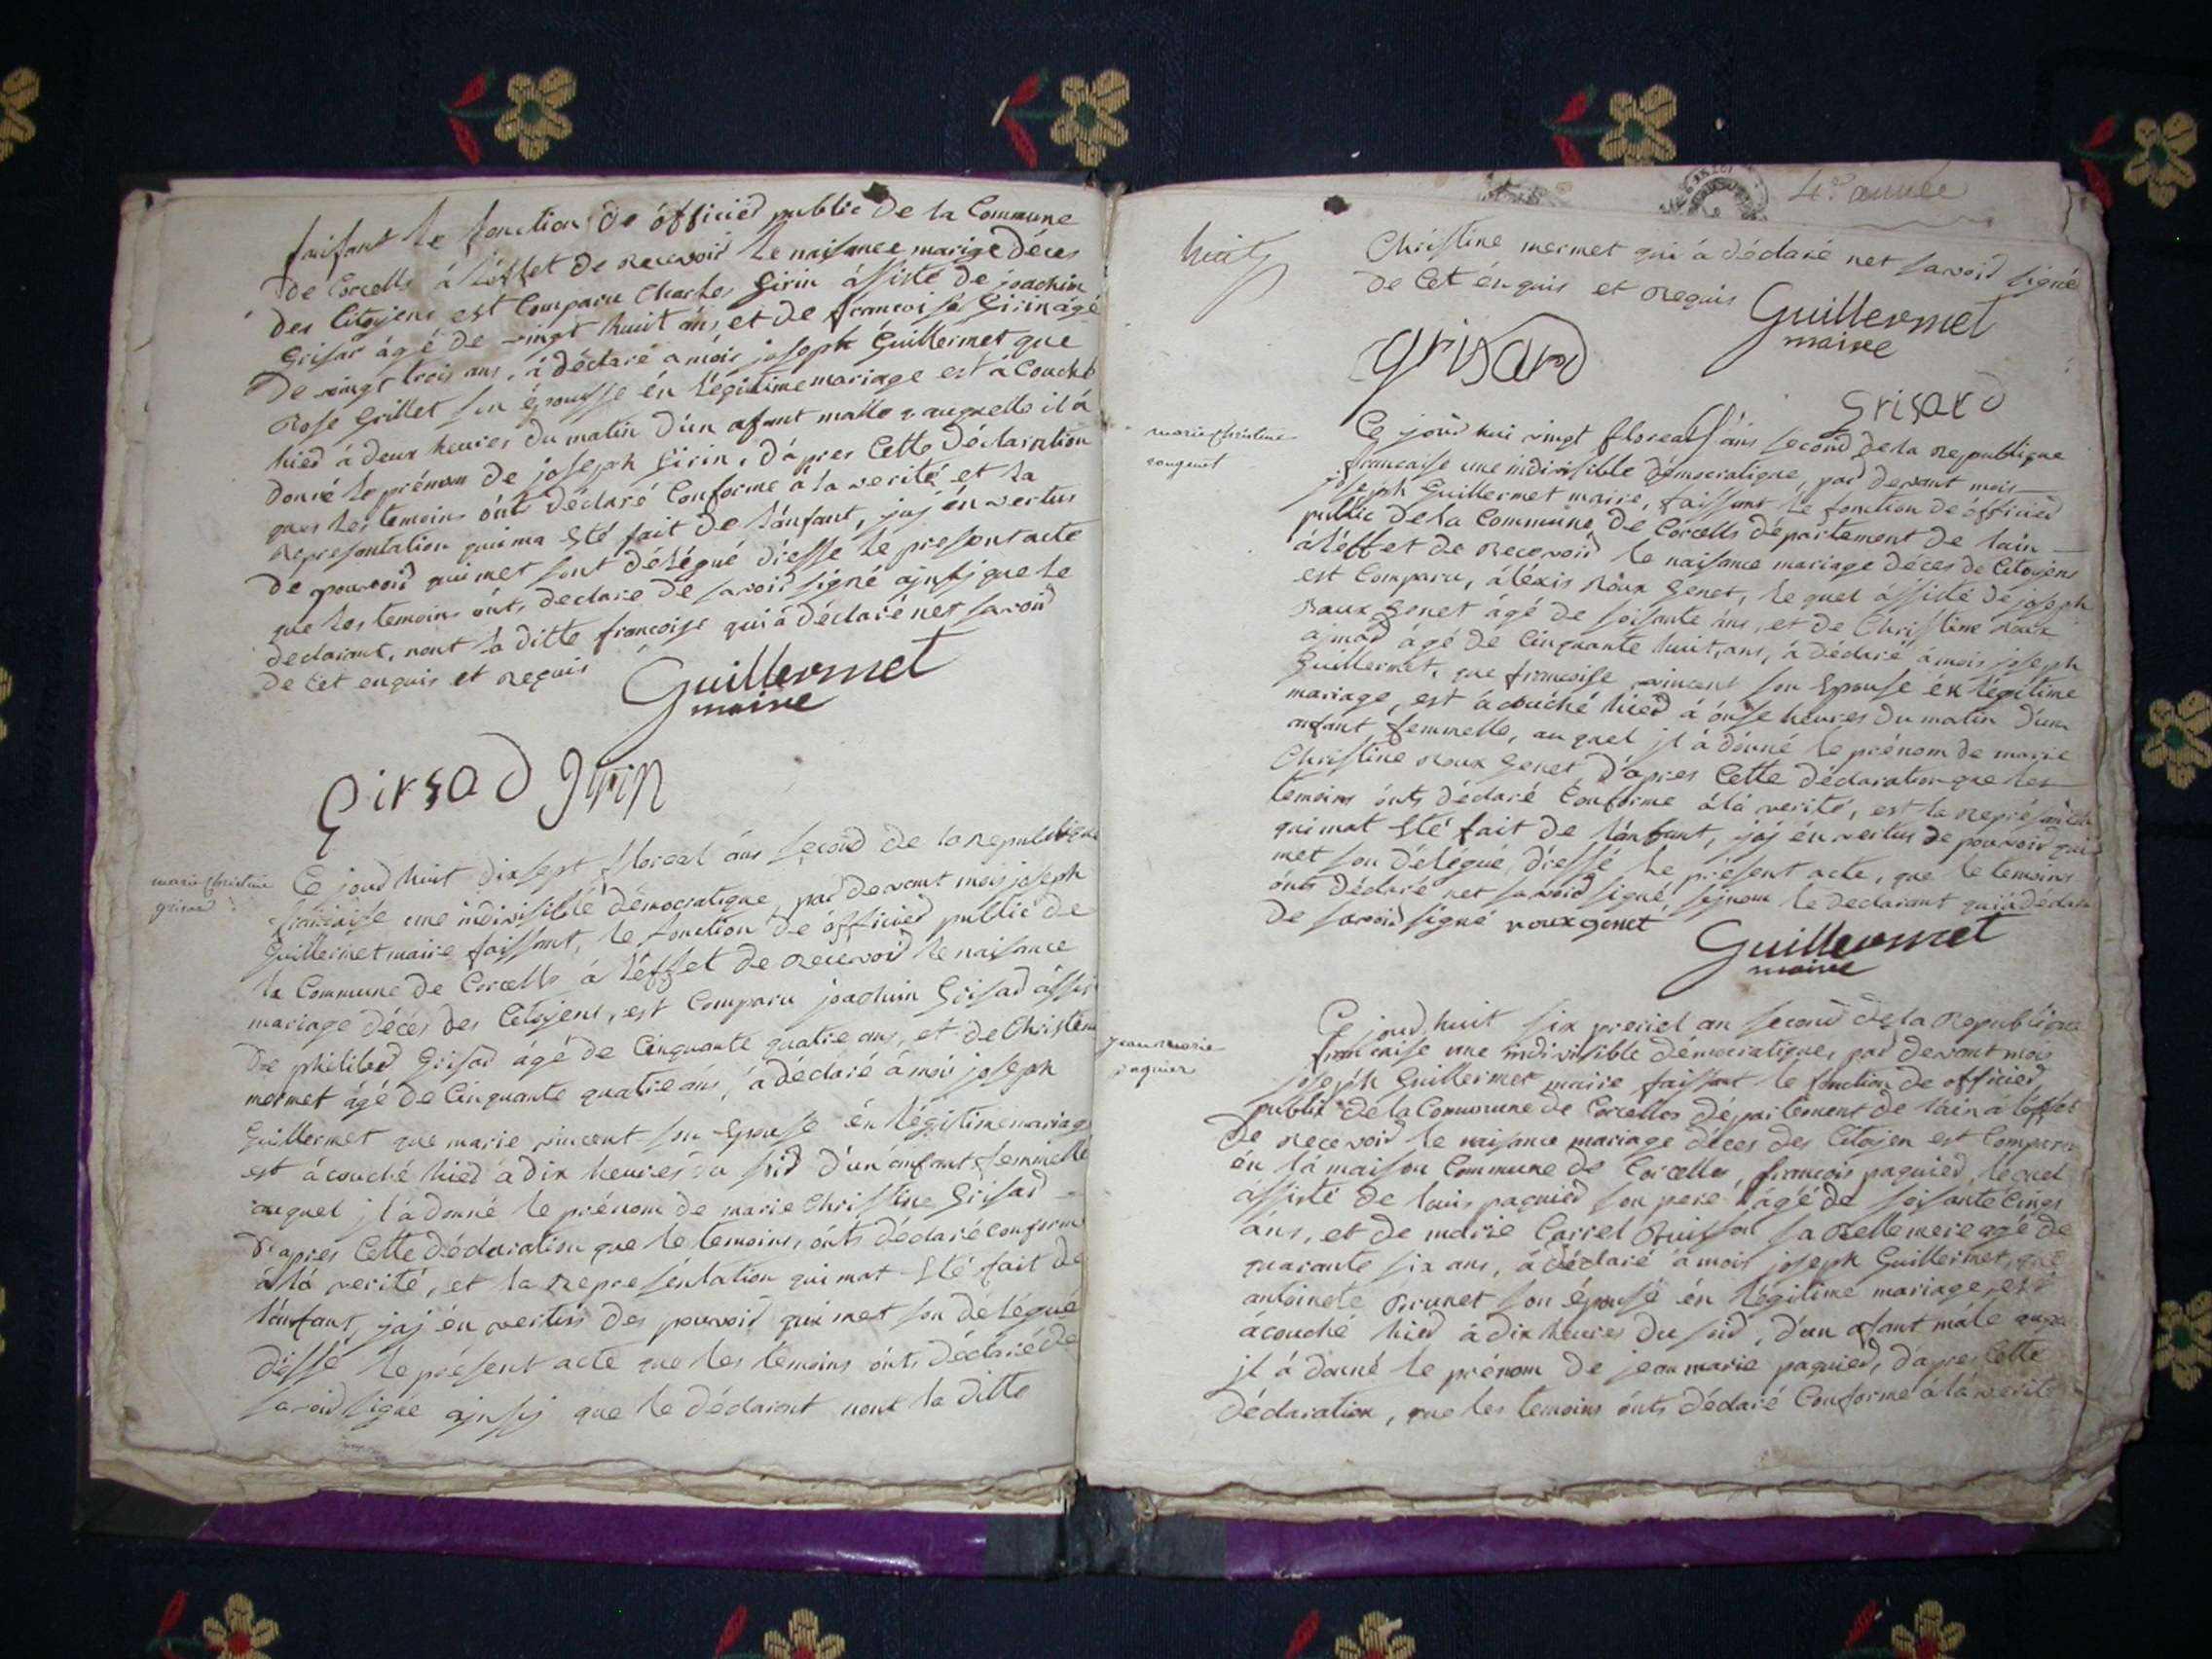 faisant le fonction de officier public de la Commune
de Corcells á l'éffet de Recevoir le naisance marige déces
des Citoyens est Comparu Charles Girin ássisté de joachim
Grisar ágé de vingt huit áns, et de francoise Girin ágé
De vingt trois ans, á déclaré a móis joseph Guillermet que
Rose Grillet son épousse én légitime mariage est á Couché
hier á deux heures du matin d'un afant malle auquelle il á
donné le prénom de joseph Girin, d'ápres Cette déclaration
ques les temoins ónt déclaré Conforme á la verité et la
Represantation qui ma Eté fait de l'ánfant, jáj én vertus
de pouvoir qui met sont délégué dressé le presont acte
que les temoins ónts declare de savoir signé ajnsj que le
declarant, nont la ditte francoise qui á déclaré net savoir
de Cet enquis et Requis
Guillermet
maire
Girsad Girin
marie christine
grisar
Ce jour huit dix sept floreal áns second de la Republique
francaise une indivisible démocratique, par devant mois joseph
Guillermet maire faissant, le fonction dé ófficier public de
la Commune de Corcells á l'éffet de Recevoir le naisance
mariage déces des Citojens, est Comparu joachim Grisar ássis
De philiber Grisar ágé de Cinquante quatre ans, et de Christine
mermet ágé de Cinquante quatre áns, á déclaré á móis joseph
Guillermet que marie vincent son Epouse én légitime mariage
est ácouché hier á dix heures du soir d'un anfant femmelle
auquel jl á donné le prénom de marie Christine Grisar
D'apres Cette déclaration que le temoins, ónts déclaré conforme
á lá verité, et la Represéntation qui mat Eté fait de
lánfant, jaj én vertús des pouvoir qui met son délégué
dressé le présent acte que les temoins ónts déclaré de
savoir signé ajnsij que le déclarant nont la ditte
4e année
huit
Christine mermet qui á déclaré net savoir signé
de Cet énquis et Requis
Guillermet
maire
grisard
Grisard
marie christine
rougenet
Ce jour hui vingt floreal áns second de la Republique
francaise une indivisible démocratique, par devant mois
joseph Guillermet maire, faissant le fonction dé ófficier
public de la Commune de Corcells département de lain
á l'éffet de Recevoir le naisance mariage déces de Citoyens
est Comparu, áléxis Roux Genet, le quel ássisté dé joseph
Roux Genet ágé de soisante áns, et de Christine Roux
ágé de Cinquante huit, ans, á déclaré á mois joseph
Guillermet, que francoise vincent son Epouse én légitime
mariage, est ácouché hier á ónse heures du matin d'un
anfant, femmelle, au quel jl á dónné le prénom de marie
Christine Roux Genet, d'ápres Cette déclaration que les
temoins ónts déclaré Conforme á lá verité, est la Represántation
qui mat Eté fait de lánfant, jáj én vertus de pouvoir qui
met son délégué, dressé le présent acte, que le temoins
ónts déclaré net savoir signé, le declarant qui á déclaré
de savoir signé rouxgenet
Guillermet
maire
jean marie
paquier
Ce jour, huit six preriel an second de la Republique
francaise une indivisible démocratique, par devant mois
joséph Guillermet maire faissant le fonction de officier
public de la Commune de Corcelles département de lain á l'éffet
De Recevoir le naisance mariage déces des Citojen est Comparu
én lá maison Commune de Corcelles, francois paquier, lequel
ássisté de louis paquier son pere ágé de soisante cinqs
áns, et de marie Carrel Buisson sa Bellemere agé de
quarante six ans, á déclaré á mois joseph Guillermet, que
antoinete Brunet son épouse én légitime mariage, est
ácouché hier á dix heures du soir, d'un afant mále auquel
jl á donné le prénom de jean marie paquier, d'apres Cette
déclaration, que les temoins ónts déclaré Conforme á lá verité